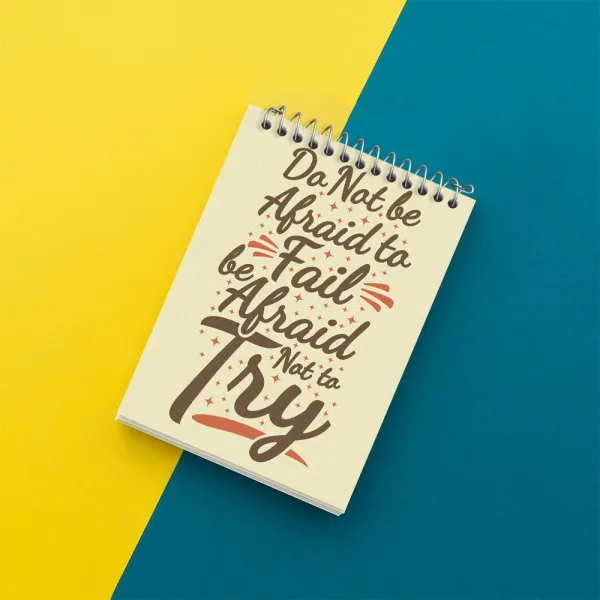 Do Not be
Afraid to
Fail
be Afraid
Not to
Try